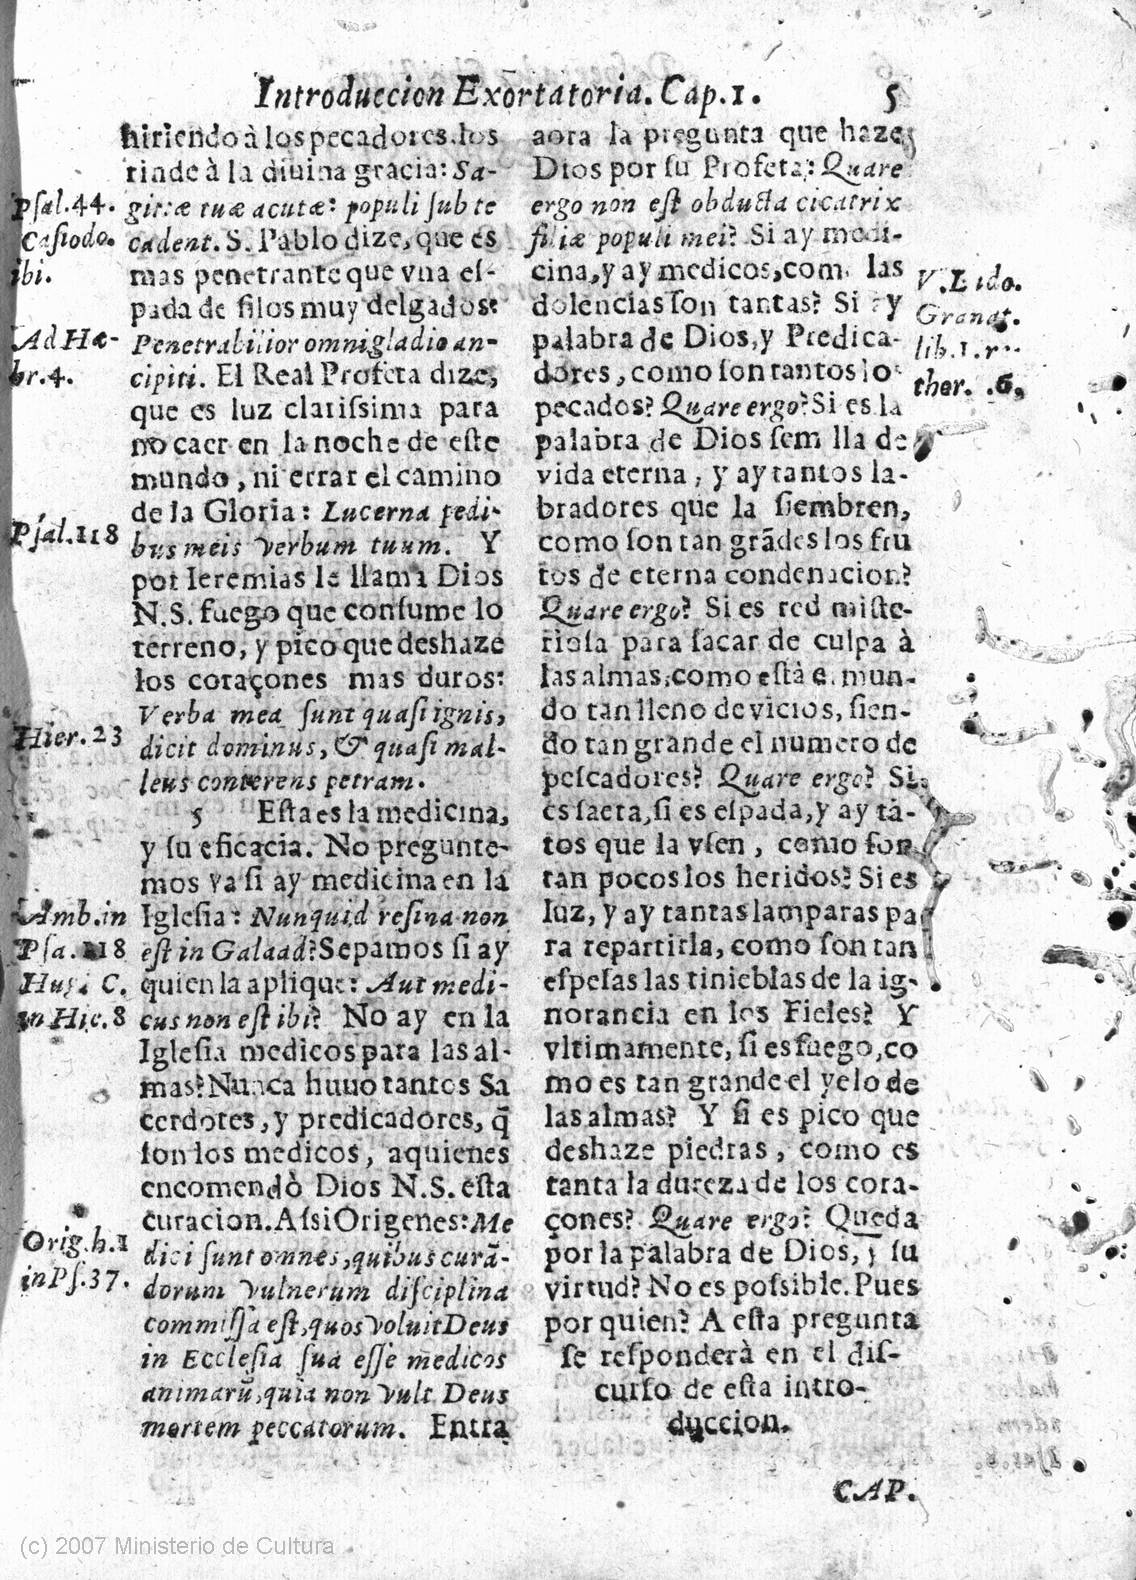 Introduccion Exortatoria. Cap.1. 5
hiriendo à los pecadores, los
rinde à la diuina gracia: Sa-
gittæ tuæ acutæ: populi sub te
cadent. S. Pablo dize, que es
mas penetrante que vna es-
pada de filos muy delgados:
Penetrabilior omni gladio an-
cipiti. El Real Profeta dize,
que es luz clarissima para
no caer en la noche de este
mundo, ni errar el camino
de la Gloria: Lucerna pedi-
bus meis verbum tuum. Y
por Ieremias le llama Dios
N.S. fuego que consume lo
terreno, y pico que deshaze
los coraçones mas duros:
Verba mea sunt quasi ignis,
dicit dominus, & quasi mal-
leus conterens petram.
5 Esta es la medicina,
y su eficacia. No pregunte-
mos ya si ay medicina en la
Iglesia: Nunquid resina non
est in Galaad? Sepamos si ay
quien la aplique: Aut medi-
cus non est ibi? No ay en la
Iglesia medicos para las al-
mas? Nunca huuo tantos Sa
cerdotes, y predicadores, q̃
son los medicos, aquienes
encomendò Dios N.S. esta
curacion. Assi Origenes: Me
dici sunt omnes, quibus curā-
dorum vulnerum disciplina
commissa est, quos voluit Deus
in Ecclesia sua esse medicos
animarū, quia non vult Deus
mortem peccatorum. Entra
Psal.44.
Casiodo.
ibi.
Ad Hæ-
br.4.
Psal.118
Hier.23
Amb.in
Psa.118
C.
in Hie.8
Orig.h.1
in Ps.37.
aora la pregunta que haze
Dios por su Profeta: Quare
ergo non est obducta cicatrix
filiæ populi mei? Si ay medi-
cina, y ay medicos, com las
dolencias son tantas? Si ay
palabra de Dios, y Predica-
dores, como son tantos lo
pecados? Quare ergo? Si es la
palabra de Dios semilla de
vida eterna, y ay tantos la-
bradores que la siembren,
como son tan grādes los fru
tos de eterna condenacion?
Quare ergo? Si es red miste-
riosa para sacar de culpa à
las almas, como està e mun-
do tan lleno de vicios, sien-
do tan grande el numero de
pescadores? Quare ergo? Si
es saeta, si es espada, y ay tā-
tos que la vsen, como son
tan pocos los heridos? Si es
luz, y ay tantas lamparas pa
ra repartirla, como son tan
espesas las tinieblas de la ig-
norancia en los Fieles? Y
vltimamente, si es fuego, co
mo es tan grande el yelo de
las almas? Y si es pico que
deshaze piedras, como es
tanta la dureza de los cora-
çones? Quare ergo? Queda
por la palabra de Dios, y su
virtud? No es possible. Pues
por quien? A esta pregunta
se responderà en el dis-
curso de esta intro-
duccion.
Granat.
lib.1.
CAP.
(c) 2007 Ministerio de Cultura